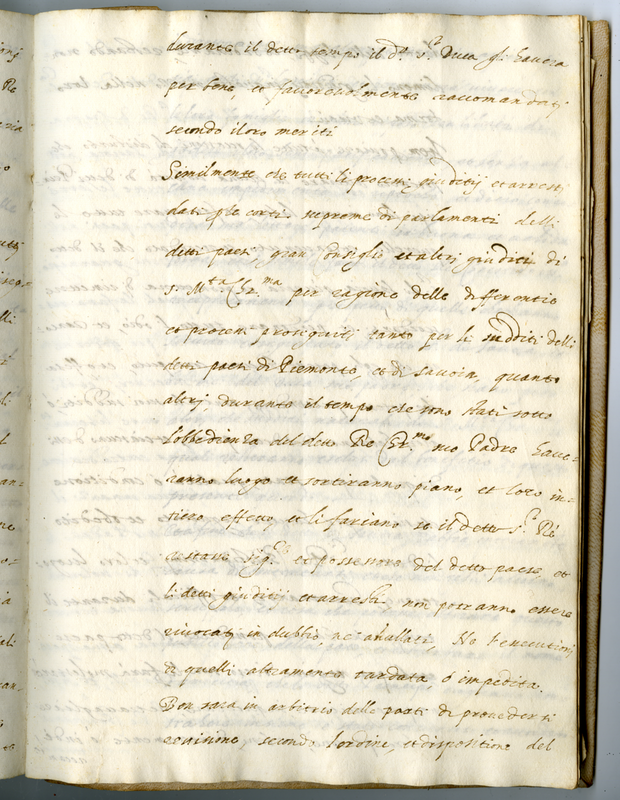 durante il detto tempo il d.º s.r Duca gli havera
per bene, et favorevolmente raccomandati
secondo il loro meriti
Similmente che tutti li processi, giuditij et arresti
dati p le corti supreme di parlamenti delli
detti paesi, gran Consiglio et altri giudici di
S. M.ta Chr.ma per ragione delle differentie
et processi prosiguiti tanto per li sudditi delli
detti paesi di Piemonte, et di Savoia, quanto
altrj, durante il tempo che sono stati sotto
l'obbedienza del detto Re Chr.mo suo Padre have-
ranno luogo et sortiranno piano, et loro in-
tiero effetto et li fariano se il detto s.r Rè
restasse sig.r et possessore del detto paese, et
li detti giuditij et arresti non potranno essere
rivocatj in dubbio, ne anullati, Ne l'executionj
di quelli altramente tardata, ó impedita.
Ben sara in arbitrio delle parti di proceder si
per
secondo l'ordine, et dispositione del